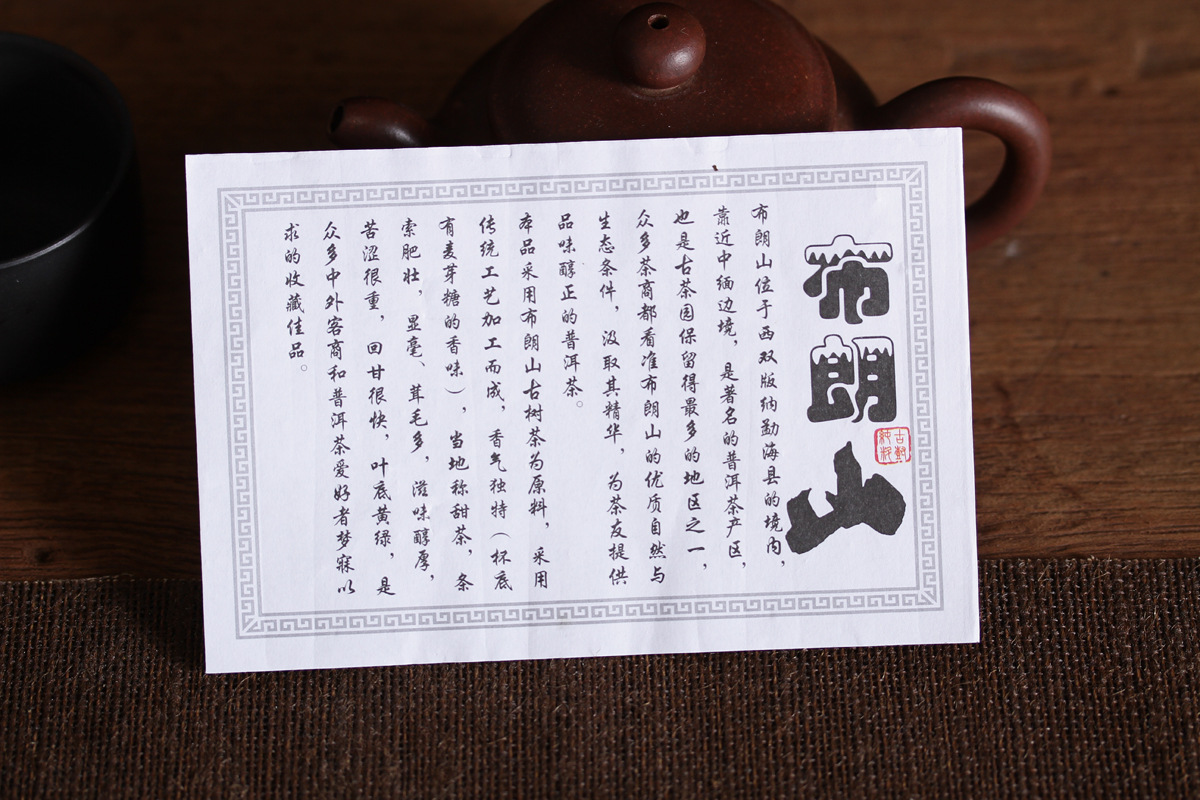 布朗山
古樹
純料
布朗山位于西双版纳勐海县的境内，
靠近中缅边境，是著名的普洱茶产区，
也是古茶园保留得最多的地区之一，
众多茶商都看准布朗山的优质自然与
生态条件，汲取其精华，为茶友提供
品味醇正的普洱茶。
本品采用布朗山古树茶为原料，采用
传统工艺加工而成，香气独特（杯底
有麦芽糖的香味），当地称甜茶，条
索肥壮，显毫、茸毛多，滋味醇厚，
苦涩很重，回甘很快，叶底黄绿，是
众多中外客商和普洱茶爱好者梦寐以
求的收藏佳品。